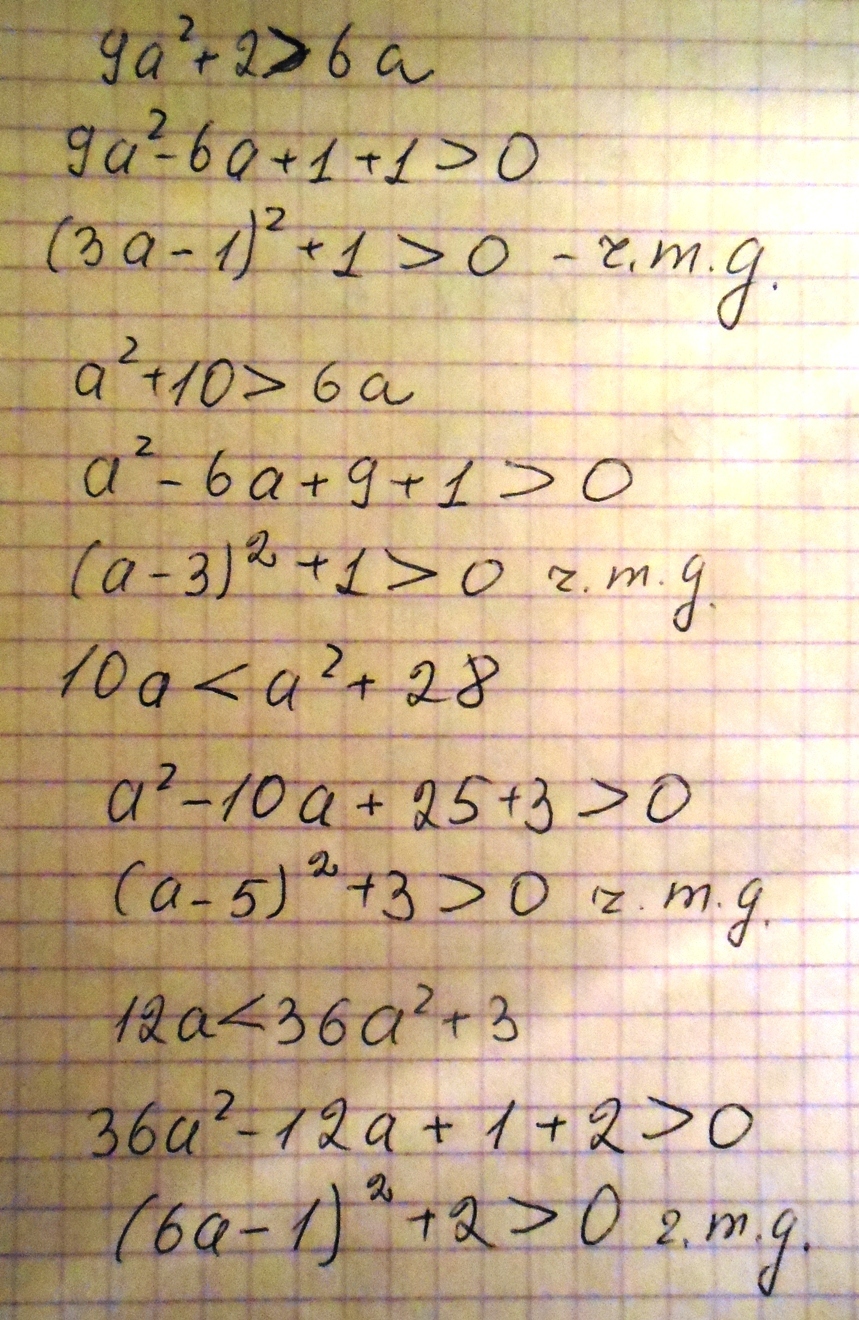 9a²+2>6a
9a²-6a+1+1>0
(3a-1)²+1>0 - ч.т.д.
a²+10>6a
a²-6a+9+1>0
(a-3)²+1>0 ч.т.д.
10a<a²+28
a²-10a+25+3>0
(a-5)²+3>0 ч.т.д.
12a<36a²+3
36a²-12a+1+2>0
(6a-1)²+2>0 ч.т.д.